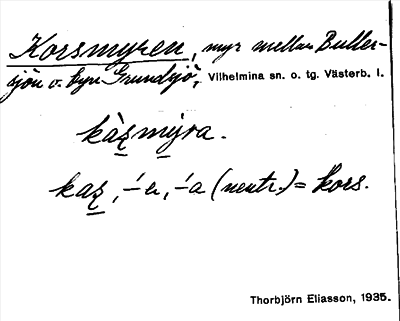 Korsmyren, myr mellan Buller-
sjön o. byn Grundsjö, Vilhelmina sn. o. tg. Västerb. l.
kàʂmýra.
kaʂ, ´-e, ´-a (neutr.) = kors.
Thorbjörn Eliasson, 1935.